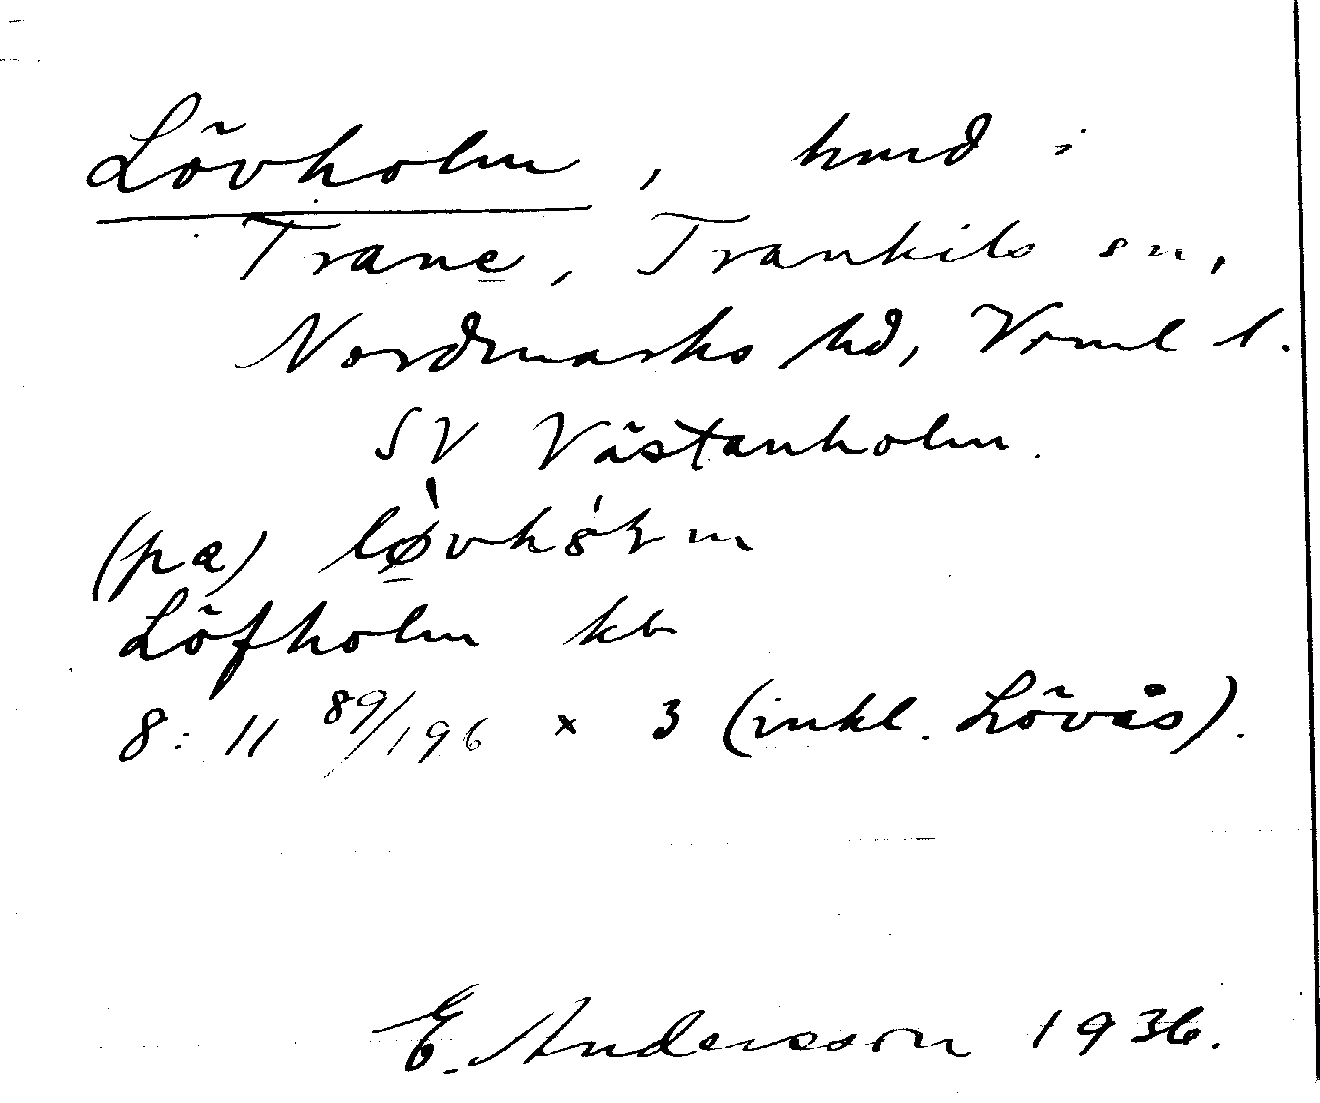 Lövholm, hmd i
Trane, Trankils sn,
Nordmarks hd, Vrml l.
SV Västanholm.
(pæ)
Löfholm kb
8:11 89/196 x 3 (inkl. Lövås).
E. Andersson 1936.